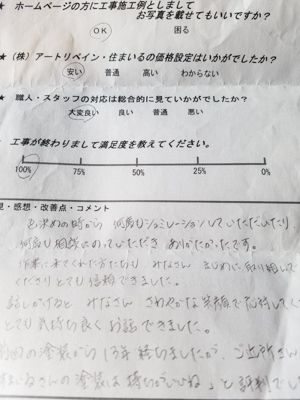 ★ ホームページの方に工事施工例としまして
お写真を載せてもいいですか？
OK 困る
★ （株）アートリペイン・住まいるの価格設定はいかがでしたか？
安い 普通 高い わからない
★ 職人・スタッフの対応は総合的に見ていかがでしたか？
大変良い 良い 普通 悪い
・工事が終わりまして満足度を教えてください。
100% 75% 50% 25% 0%
見・感想・改善点・コメント
色決めの時から 何度もシュミレーションしていただいたり、
何度も相談にのっていただき ありがたかったです。
作業に来てくれた方たちも みなさん まじめに取り組んで
くださりとても信頼できました。
話しかけると みなさん さわやかな笑顔で応対してく
とても気持ち良くお話できました。
前回の塗装から13年持ちましたが、ご近所さん
まいるさんの塗装は持ちがいいね」と評判でし